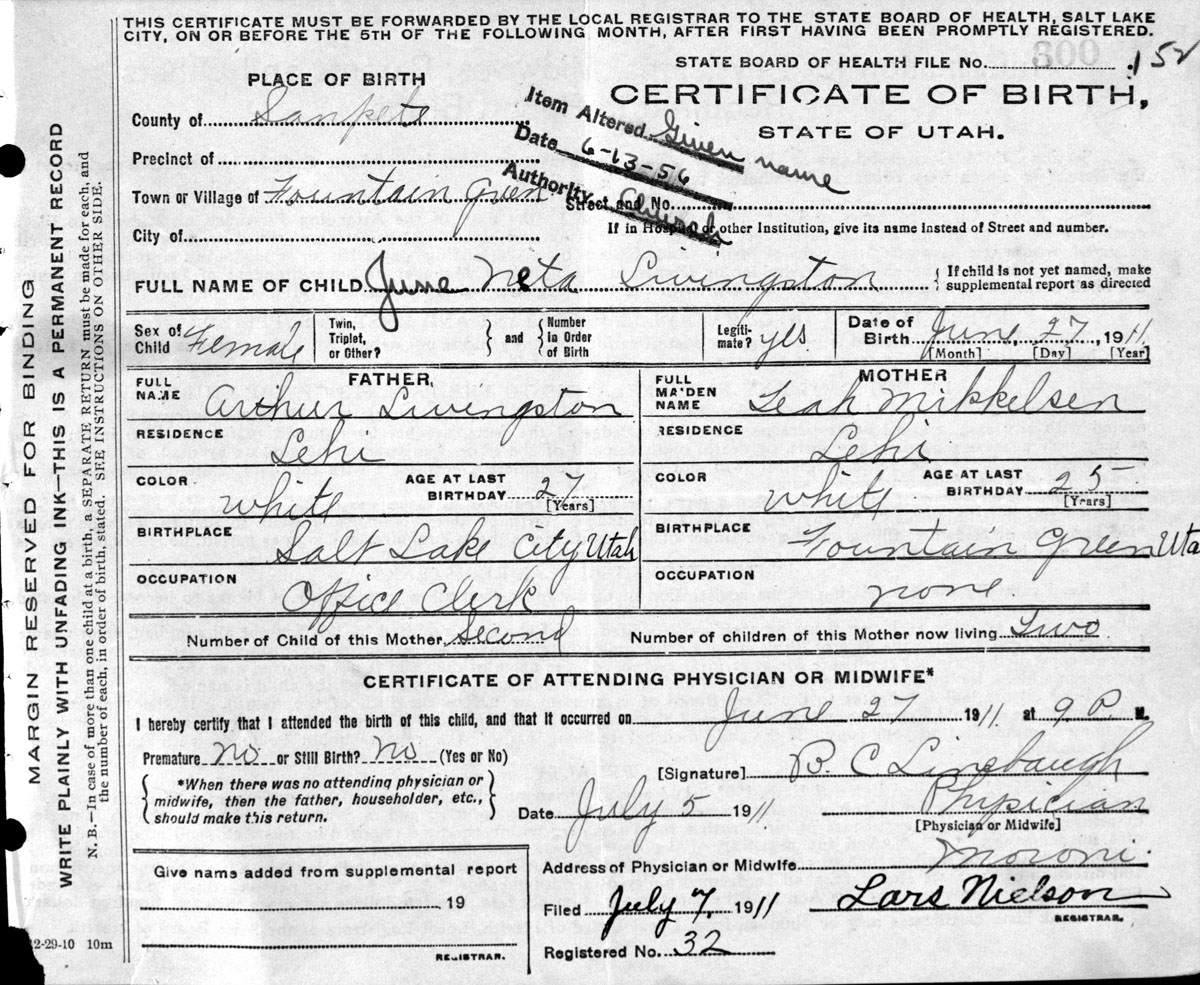 THIS CERTIFICATE MUST BE FORWARDED BY THE LOCAL REGISTRAR TO THE STATE BOARD OF HEALTH, SALT LAKE
CITY, ON OR BEFORE THE 5TH OF THE FOLLOWING MONTH, AFTER FIRST HAVING BEEN PROMPTLY REGISTERED.
STATE BOARD OF HEALTH FILE No. 152
300
PLACE OF BIRTH
CERTIFICATE OF BIRTH,
STATE OF UTAH.
County of Sanpete
Item Altered Given name
Date 6-13-56
Authority Church
Precinct of
Town or Village of Fountain Green
Street and No.
City of
If in Hospital or other Institution, give its name instead of Street and number.
FULL NAME OF CHILD June Neta Livingston
{ If child is not yet named, make
supplemental report as directed
Sex of Child Female
Twin, Triplet, or Other? } and { Number in Order of Birth
Legitimate? yes
Date of Birth June, 27, 1911
[Month] [Day] [Year]
FATHER,
FULL NAME Arthur Livingston
MOTHER
FULL MAIDEN NAME Leah Mikkelsen
RESIDENCE Lehi
RESIDENCE Lehi
COLOR White AGE AT LAST BIRTHDAY 27 [Years]
COLOR White AGE AT LAST BIRTHDAY 25 [Years]
BIRTHPLACE Salt Lake City Utah
BIRTHPLACE Fountain Green Uta
OCCUPATION Office Clerk
OCCUPATION none
Number of Child of this Mother Second Number of children of this Mother now living Two
CERTIFICATE OF ATTENDING PHYSICIAN OR MIDWIFE*
I hereby certify that I attended the birth of this child, and that it occurred on June 27 1911 at 9 P. M.
Premature no or Still Birth? no (Yes or No)
{ *When there was no attending physician or
midwife, then the father, householder, etc.,
should make this return. }
[Signature] B. C. Linebaugh
Date July 5 1911 Physician
[Physician or Midwife]
Address of Physician or Midwife Moroni
Give name added from supplemental report
19
REGISTRAR.
Filed July 7, 1911 Lars Nielson
REGISTRAR.
Registered No. 32
12-29-10 10m
MARGIN RESERVED FOR BINDING
WRITE PLAINLY WITH UNFADING INK—THIS IS A PERMANENT RECORD
N. B.—In case of more than one child at a birth, a SEPARATE RETURN must be made for each, and
the number of each, in order of birth, stated. SEE INSTRUCTIONS ON OTHER SIDE.